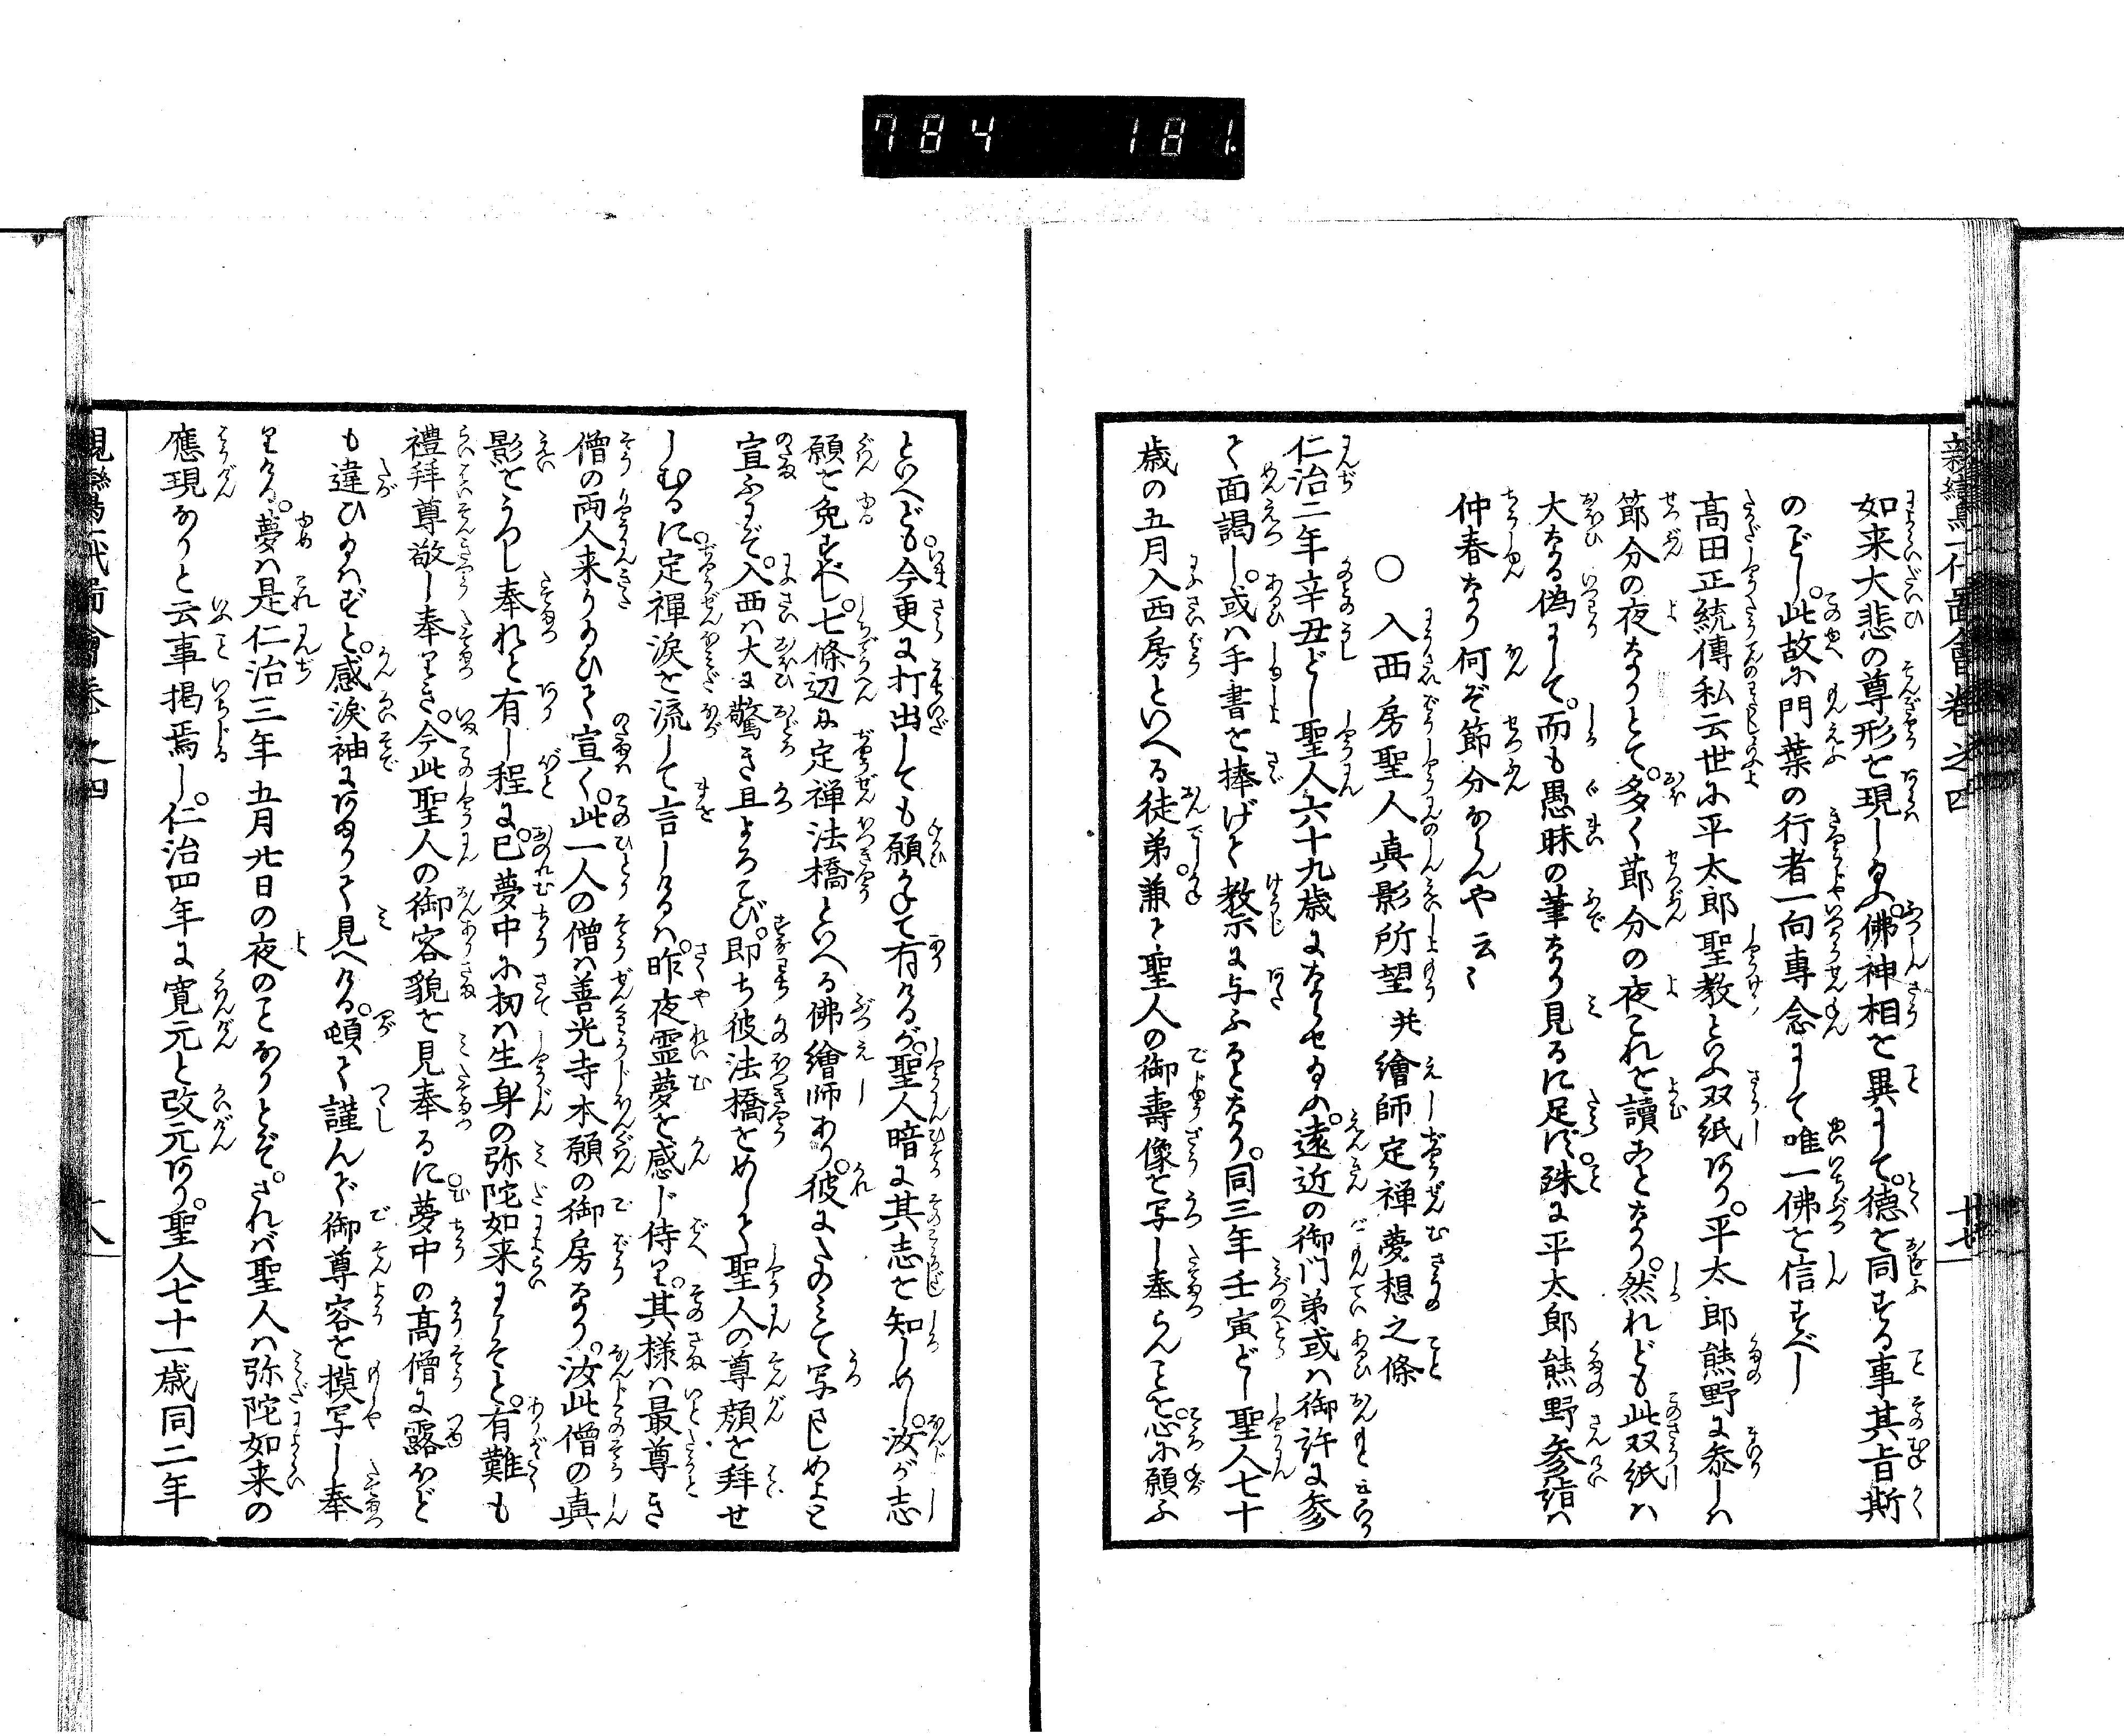 784 181.
親鸞聖人一代図會巻之四
如来大悲の尊形を現し給ふ。佛神相を異にして。徳を同する事其旨斯
のごとし。此故に門葉の行者一向専念にして唯一佛を信ずべし
高田正統傳私云世に平太郎聖教といふ双紙あり。平太郎熊野に参しは
節分の夜なりとて。多く節分の夜これを讀ことなり。然れども此双紙は
大なる偽にして。而も愚昧の筆なり見るに足ず。殊に平太郎熊野参詣は
仲春なり何ぞ節分ならんや云々
○入西房聖人真影所望并繪師定禅夢想之條
仁治二年辛丑どし聖人六十九歳にならせ給ふ。遠近の御門弟或は御許に参
て面謁し。或は手書を捧げて教示に与ふるとなり。同三年壬寅どし聖人七十
歳の五月入西房といへる徒弟。兼て聖人の御壽像を写し奉らんことを。心に願ふ
といへども。今更に打出しても願かねて有けるが。聖人暗に其志を知しめし。汝が志
願を免すべし。七條辺に定禅法橋といへる佛繪師あり。彼にたのみて写さしめよと
宣ふにぞ。入西は大に驚き且よろこび。即ち彼法橋をめして聖人の尊顔を拜せ
しむるに。定禅涙を流して言しけるは。昨夜霊夢を感じ侍り。其様は最尊き
僧の両人来り給ひて宣く。此一人の僧は善光寺本願の御房なり。汝此僧の真
影をうつし奉れと有し程に。已夢中に扨は生身の弥陀如来にこそと。有難も
禮拜尊敬し奉りき。今此聖人の御容貌を見奉るに。夢中の高僧に露ほど
も違ひ給はずと。感涙袖にあまりて見へける。頓て謹んで御尊容を摸写し奉
りける。夢は是仁治三年五月廿日の夜のことなりとぞ。されば聖人は弥陀如来の
應現なりと云事掲焉し。仁治四年に寛元と改元あり。聖人七十一歳同二年
親鸞一代啚會巻之四